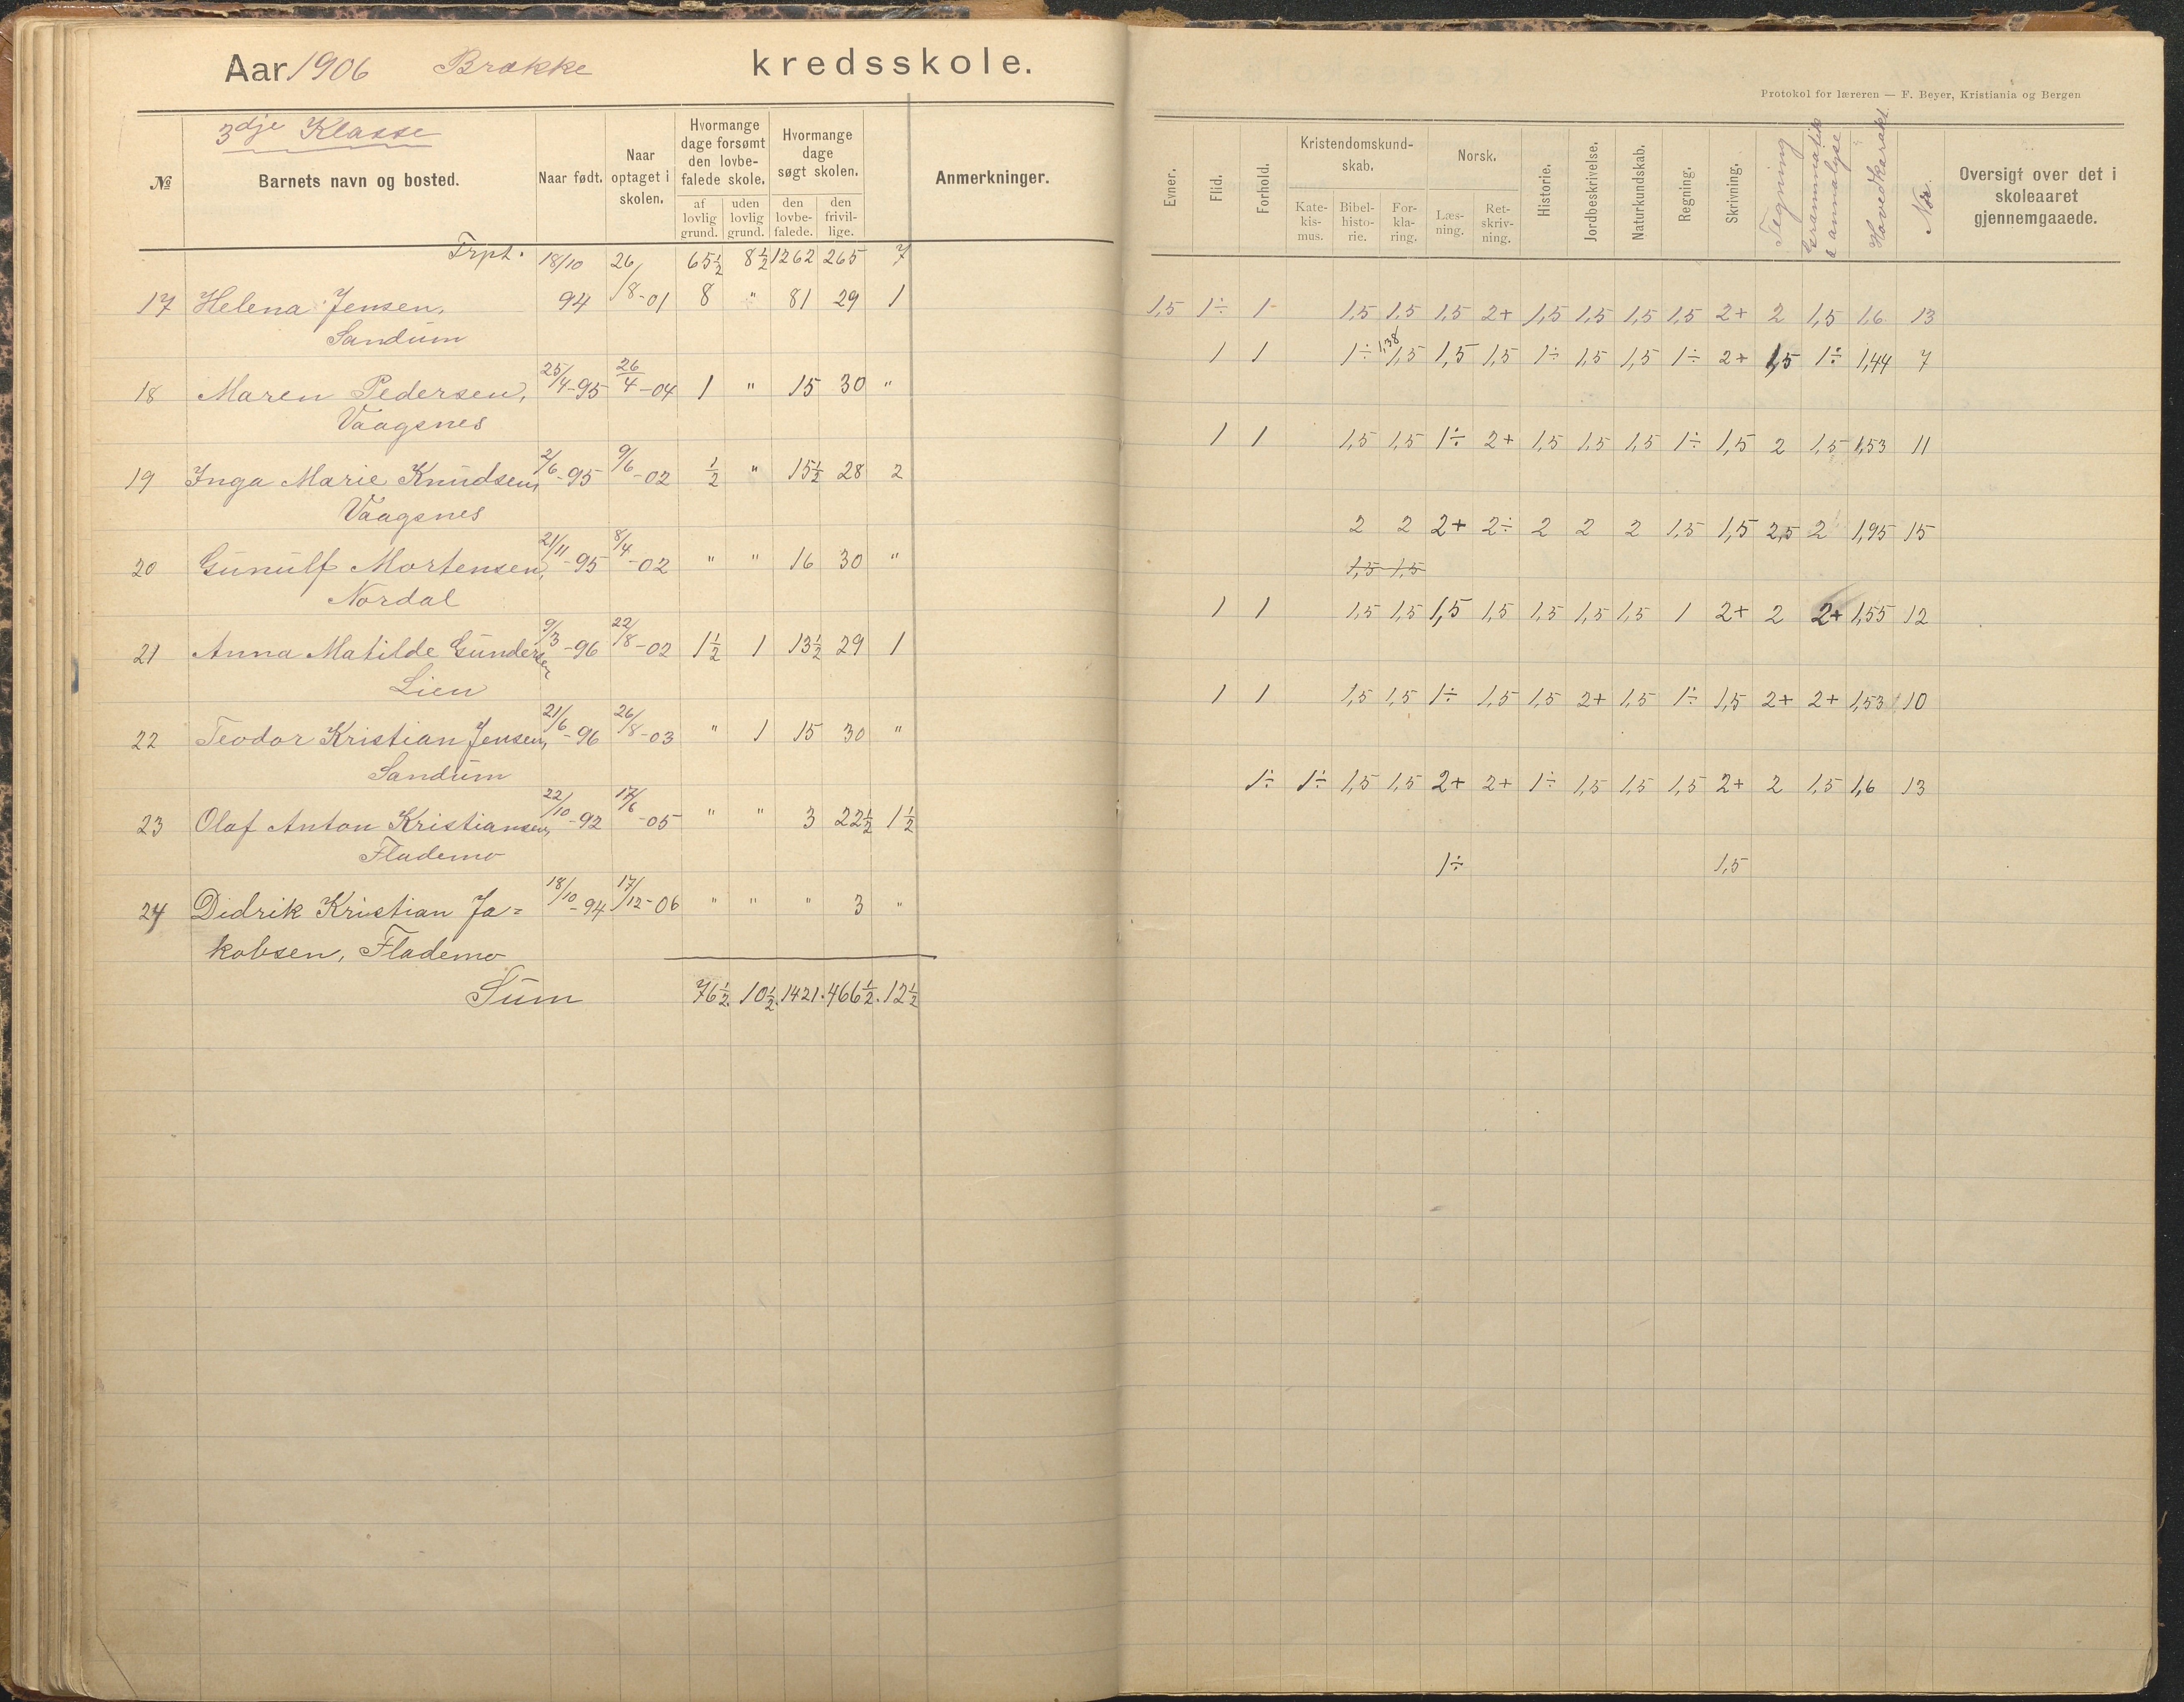 Aar 1906 Brække kredsskole.
3dje Klasse
№ Barnets navn og bosted. Naar født. Naar optaget i skolen. Hvormange dage forsømt den lovbefalede skole. af lovlig grund. uden lovlig grund. Hvormange dage søgt skolen. den lovbefalede. den frivillige. Anmerkninger.
Trpt. 65½ 8½ 1262 265 7
17 Helena Jensen, 18/10 94 26/8-01 8 " 81 29 1
Sandum
18 Maren Pedersen, 25/4-95 26/4-04 1 " 15 30 "
Vaagsnes
19 Inga Marie Knudsen, 2/6-95 9/6-02 ½ " 15½ 28 2
Vaagsnes
20 Gunulf Mortensen, 21/11-95 8/4-02 " " 16 30 "
Nordal
21 Anna Matilde Gundersen 9/3-96 22/8-02 1½ 1 13½ 29 1
Lien
22 Teodor Kristian Jensen, 21/6-96 26/8-03 " 1 15 30 "
Sandum
23 Olaf Anton Kristiansen, 22/10-92 17/6-05 " " 3 22½ 1½
Flademo
24 Didrik Kristian Ja= 18/10-94 17/12-06 " " " 3 "
kobsen, Flademo
Sum 76½. 10½. 1421. 466½. 12½
Protokol for læreren — F. Beyer, Kristiania og Bergen
Evner. Flid. Forhold. Kristendomskundskab. Katekismus. Bibelhistorie. Forklaring. Norsk. Læsning. Retskrivning. Historie. Jordbeskrivelse. Naturkundskab. Regning. Skrivning. Tegning Grammatik & annalyse Hovedkarakt. Nr. Oversigt over det i skoleaaret gjennemgaaede.
1,5 1÷ 1- 1,5 1,5 1,5 2+ 1,5 1,5 1,5 1,5 2+ 2 1,5 1,6 13
1 1 1÷ 1,38 1,5 1,5 1,5 1÷ 1,5 1,5 1÷ 2+ 1,5 1÷ 1,44 7
1 1 1,5 1,5 1÷ 2+ 1,5 1,5 1,5 1÷ 1,5 2 1,5 1,53 11
2 2 2+ 2÷ 2 2 2 1,5 1,5 2,5 2 1,95 15
1,5 1,5
1 1 1,5 1,5 1,5 1,5 1,5 1,5 1,5 1 2+ 2 2+ 1,55 12
1 1 1,5 1,5 1÷ 1,5 1,5 2+ 1,5 1÷ 1,5 2+ 2+ 1,53 10
1÷ 1÷ 1,5 1,5 2+ 2+ 1÷ 1,5 1,5 1,5 2+ 2 1,5 1,6 13
1÷ 1,5